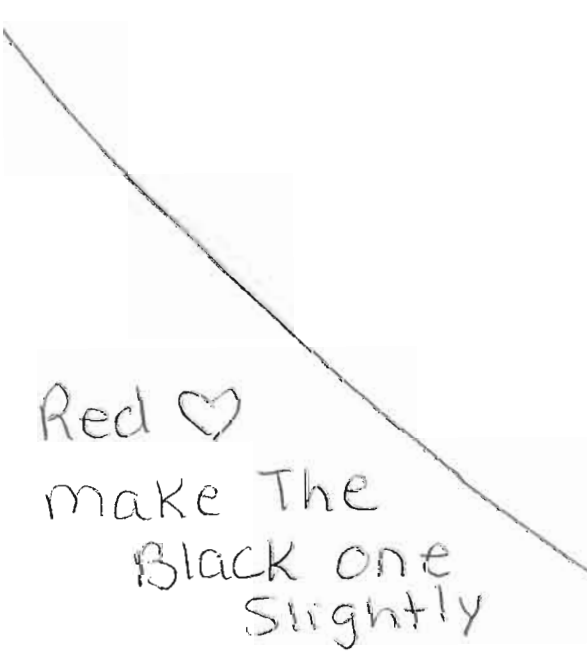 Red ♡
make The
Black one
Slightly